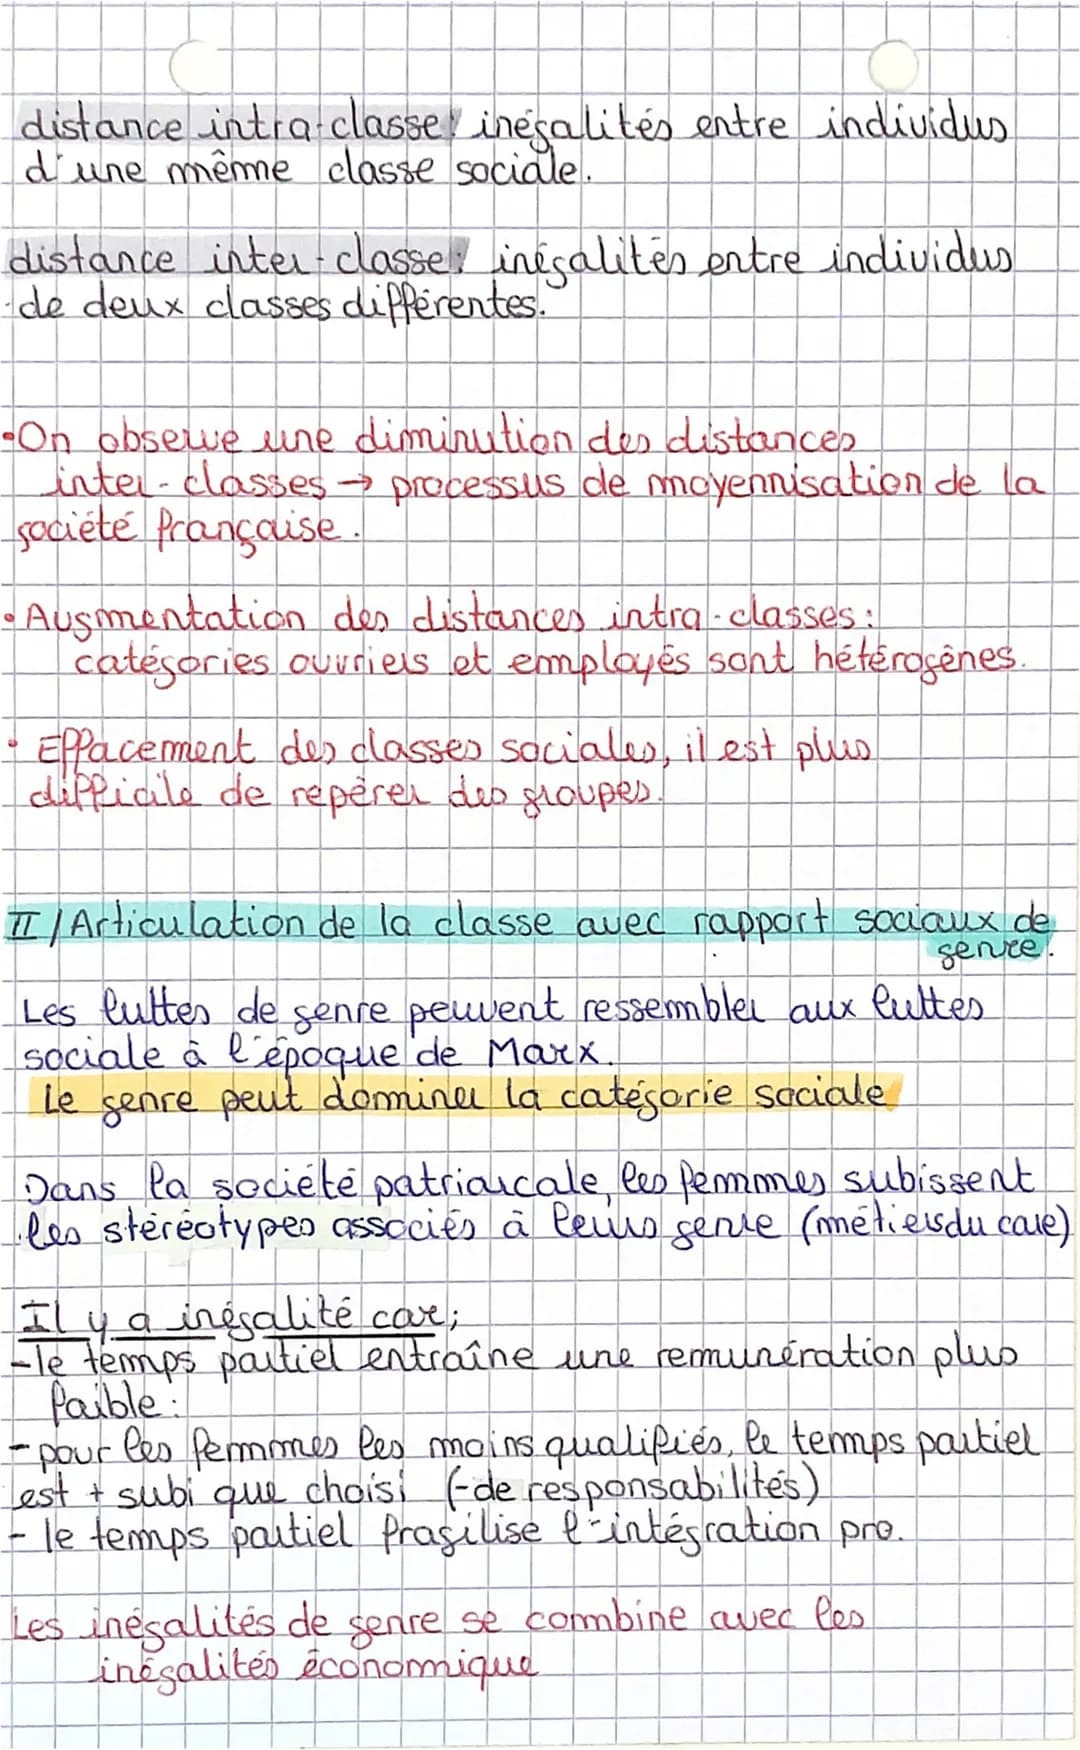 distance intra-classe: inégalités entre individus
d'une même classe sociale.
distance inter-classe: inégalités entre individus
de deux classes différentes.
•On observe une diminution des distances
inter-classes → processus de moyennisation de la
société française.
• Augmentation des distances intra-classes:
catégories ouvriers et employés sont hétérogènes.
• Effacement des classes sociales, il est plus
difficile de repérer des groupes.
II / Articulation de la classe avec rapport sociaux de
genre.
Les luttes de genre peuvent ressembler aux luttes
sociale à l'époque de Marx.
Le genre peut dominer la catégorie sociale
Dans la société patriarcale, les femmes subissent
les stéréotypes associés à leurs genre (métiers du care)
Il y a inégalité care;
-le temps partiel entraîne une remunération plus
faible:
- pour les femmes les moins qualifiés, le temps partiel
est + subi que choisi (-de responsabilités)
- le temps partiel fragilise l'intégration pro.
Les inégalités de genre se combine avec les
inégalités économique